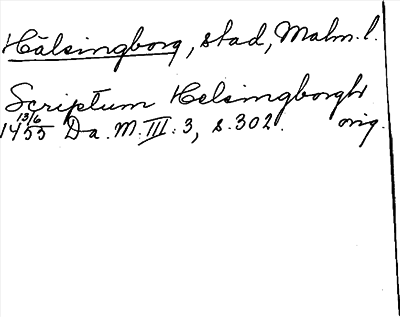 Hälsingborg, stad, Malm. l.
Scriptum Helsingborgh
13/6
1455 Da. M. III: 3, s. 302. orig.